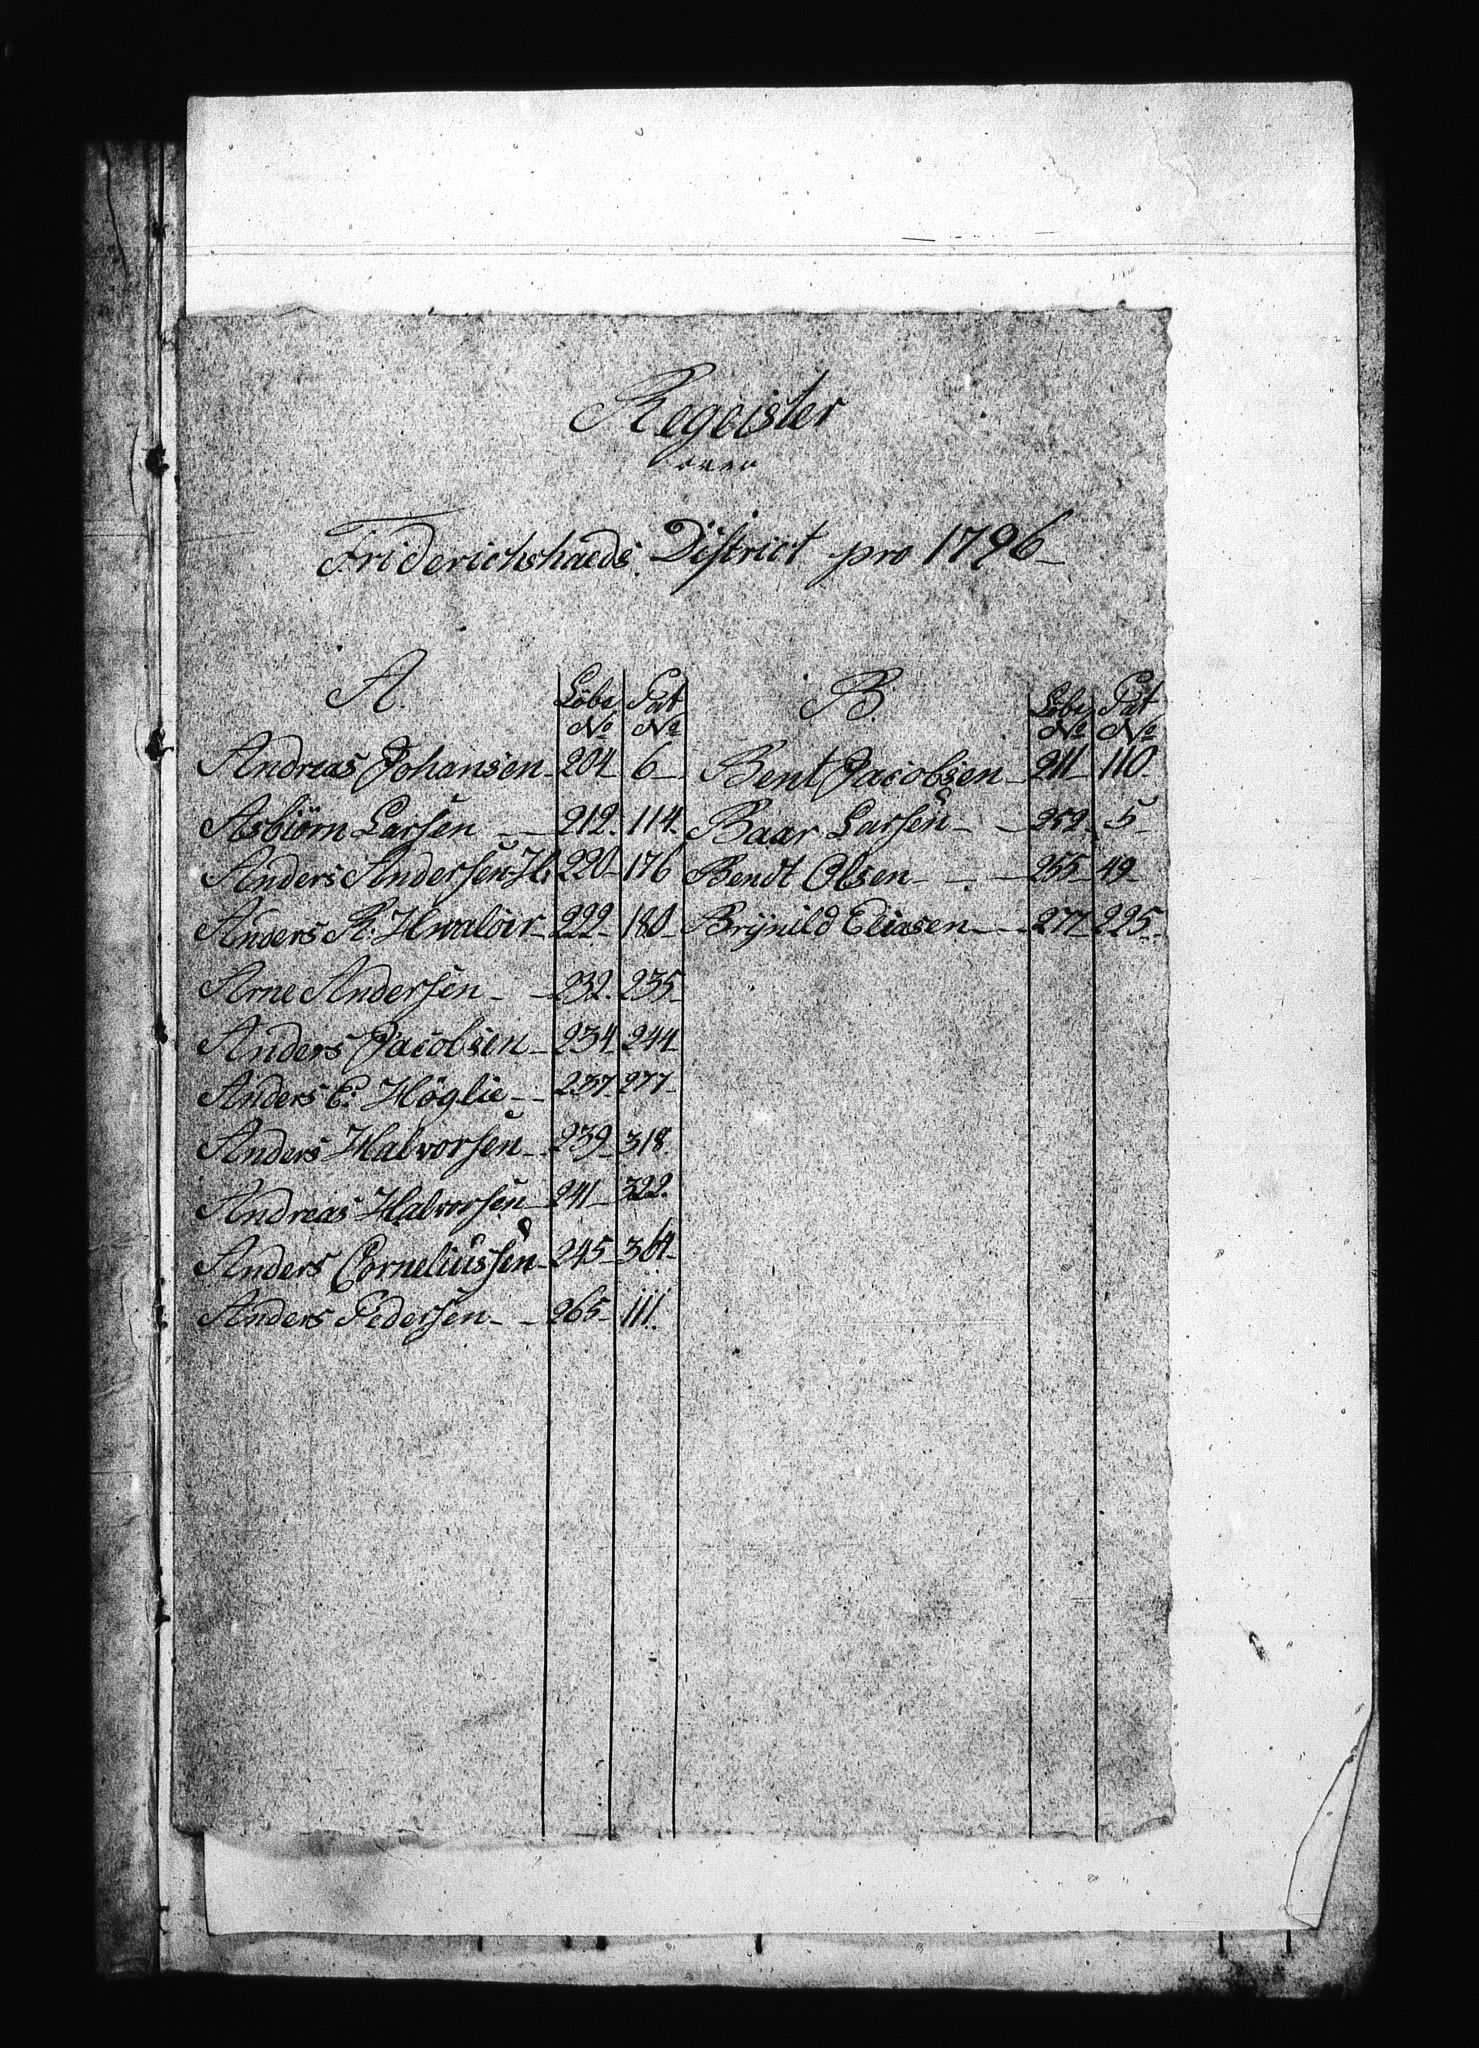 Regeister
over
Friderichshalds District pro 1796
A.
Löbe No | Pat No
Andreas Johansen 204 6
Asbiörn Larsen 212. 114.
Anders Andersen H. 220 176
Anders R. Hwalöir 222 180
Arne Andersen 232. 235
Anders Jacobsen 234 244
Anders E. Höglie 237 277
Anders Halvorsen 239 318.
Andreas Halvorsen 241 322.
Anders Corneliussen 245 364
Anders Pedersen 265 111.
B.
Löbe No | Pat No
Bent Jacobsen 211 110.
Baar Larsen 252. 5
Bendt Olsen 255 49
Brÿnild Eliasen 277 225.